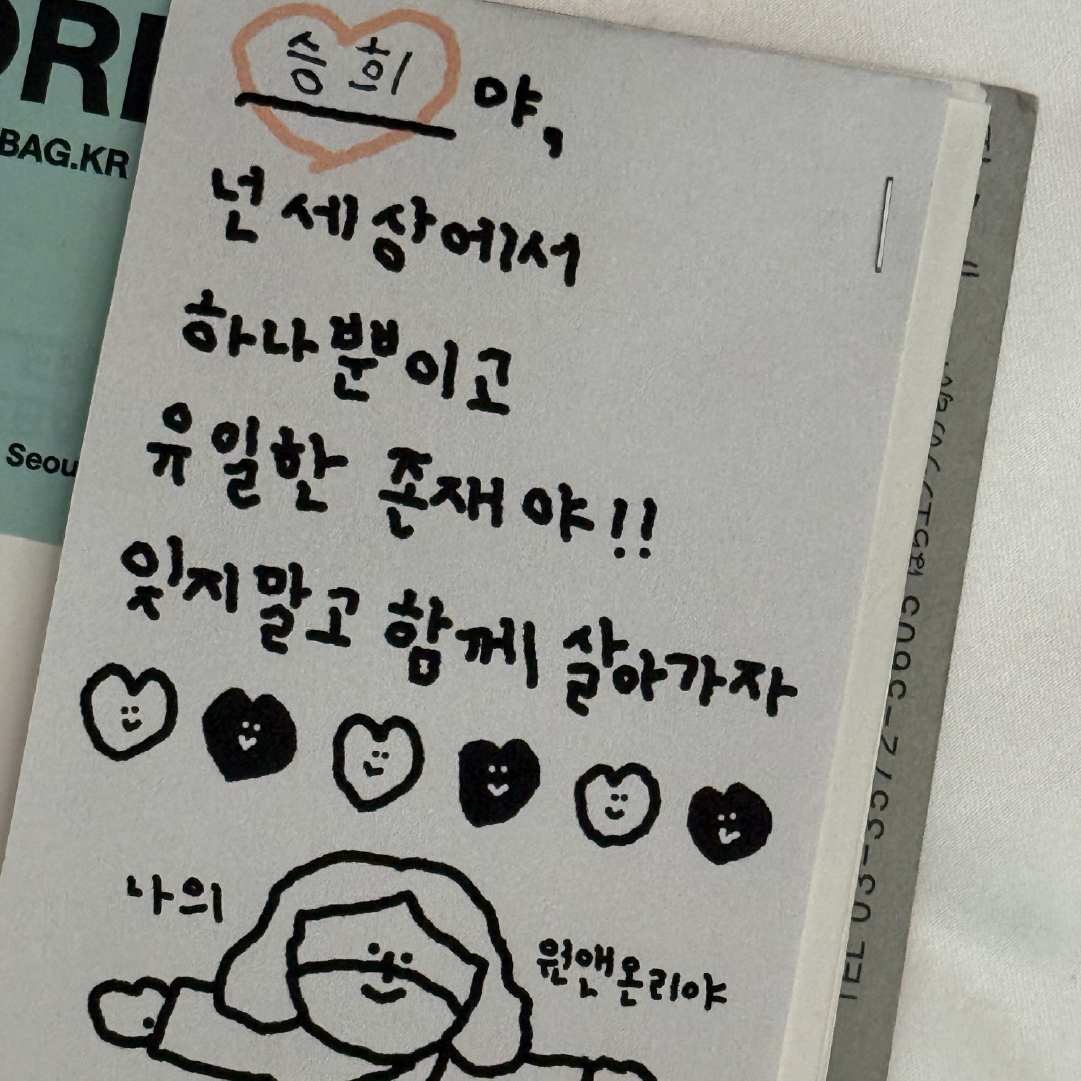 BAG.KR
Seou
승희야,
넌 세상에서
하나뿐이고
유일한 존재야!!
잊지말고 함께 살아가자
나의
원앤온리야
TEL 03-3572-5605